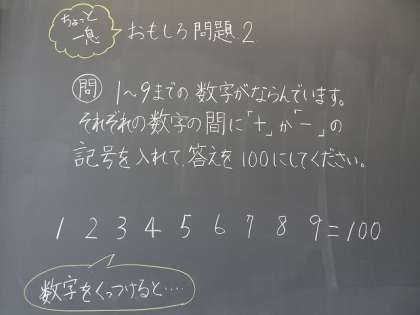 ちょっと
一息
おもしろ問題2
問 1〜9までの数字がならんでいます。
それぞれの数字の間に「+」か「-」の
記号を入れて、答えを100にしてください。
1 2 3 4 5 6 7 8 9=100
数字をくっつけると・・・・